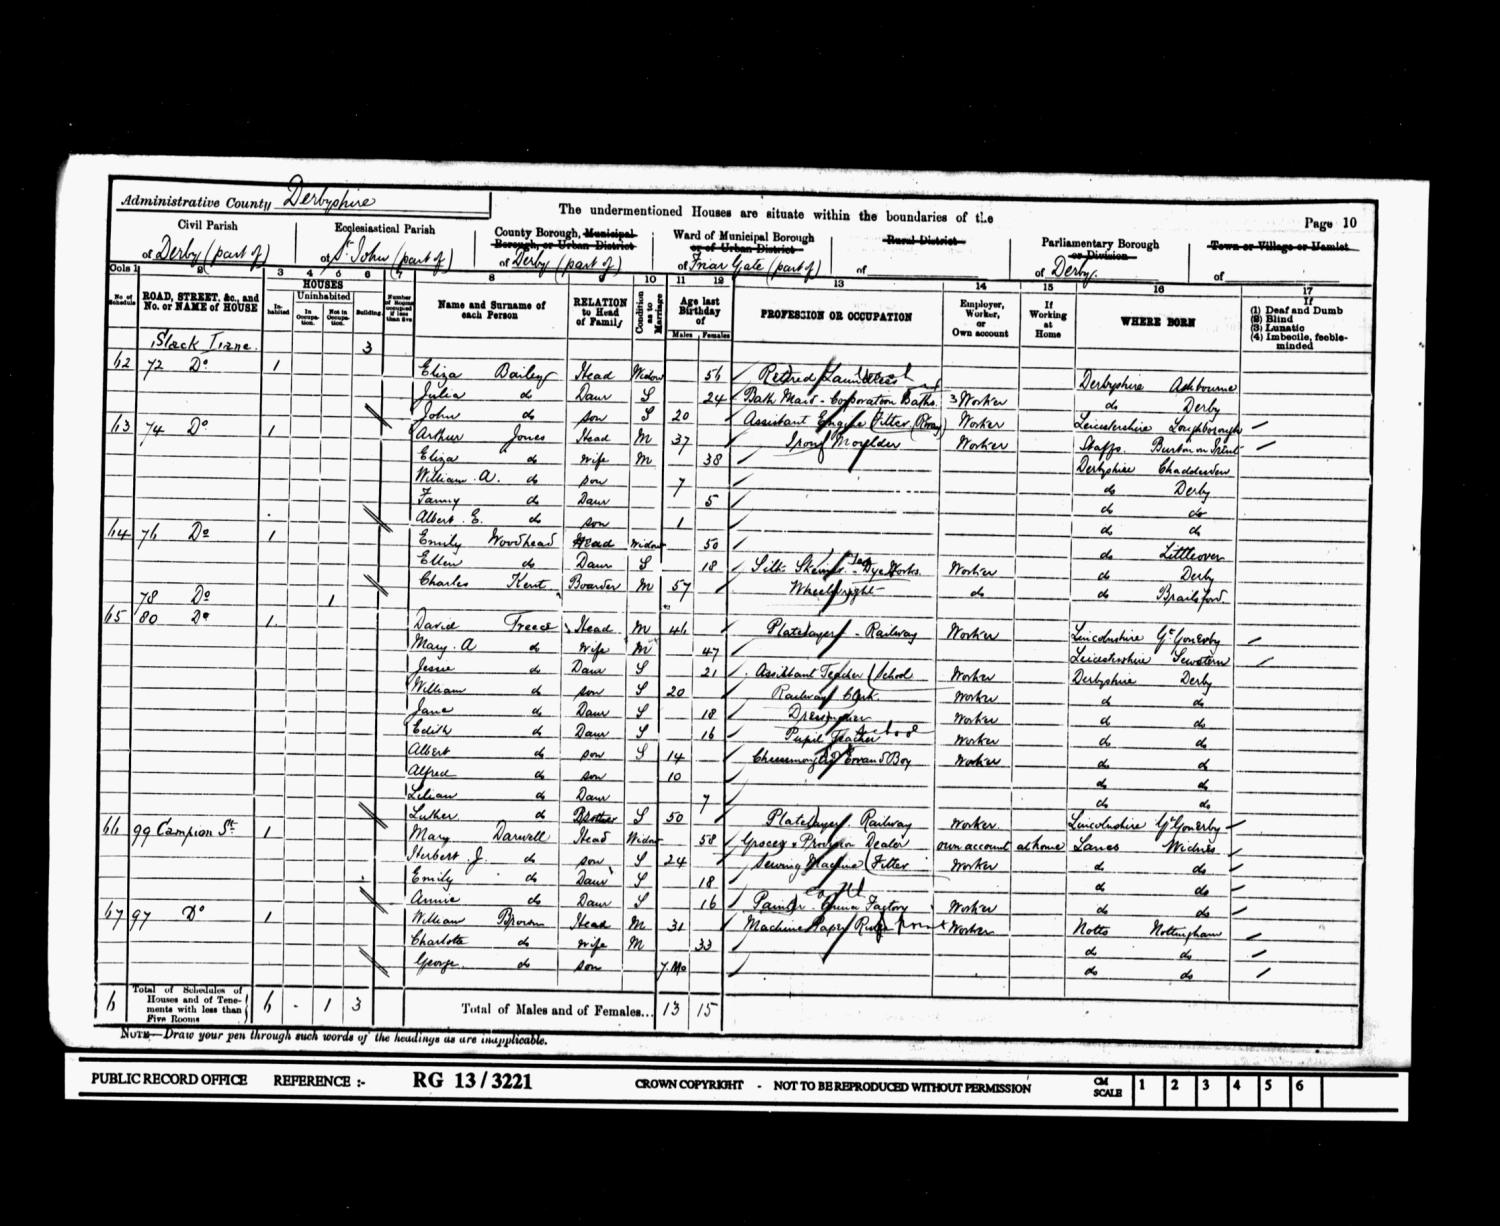 Administrative County Derbyshire
The undermentioned Houses are situate within the boundaries of the
Page 10
Civil Parish
of Derby (part of)
Ecclesiastical Parish
of St John (part of)
County Borough, Municipal
Borough, or Urban District
of Derby (part of)
Ward of Municipal Borough
or of Urban District
of Friar Gate (part of)
Rural District
of
Parliamentary Borough
or Division
of Derby.
Town or Village or Hamlet
of
Cols 1 2 3 4 5 6 7 8 9 10 11 12 13 14 15 16 17
No. of Schedule
ROAD, STREET, &c., and No. or NAME of HOUSE
HOUSES
Inhabited
Uninhabited
In Occupation.
Not in Occupation.
Building.
Number of Rooms occupied if less than five
Name and Surname of each Person
RELATION to Head of Family
Condition as to Marriage
Age last Birthday of
Males Females
PROFESSION OR OCCUPATION
Employer, Worker, or Own account
If Working at Home
WHERE BORN
If
(1) Deaf and Dumb
(2) Blind
(3) Lunatic
(4) Imbecile, feeble-minded
Slack Lane. 3
62 72 Do 1 Eliza Bailey Head Widow 56 Retired Laundress Derbyshire Ashbourne
Julia do Daur S 24 Bath Maid - Corporation Baths. Worker do Derby
John do son S 20 Assistant Engine Fitter Worker Leicestershire Loughborough
63 74 Do 1 Arthur Jones Head M 37 Iron Moulder Worker Staffs. Burton on Trent
Eliza do wife M 38 Derbyshire Chaddesden
William A. do son 7 do Derby
Fanny do Daur 5 do do
Albert E. do son 1 do do
64 76 Do 1 Emily Woodhead Head Widow 50 do Littleover
Ellen do Daur S 18 Silk Dye Works. Worker do Derby
Charles Kent Boarder M 57 Wheelwright do do Brailsford.
78 Do 1
65 80 Do 1 David Freece Head M 46 Platelayer - Railway Worker Lincolnshire Gt Gonerby
Mary A do Wife M 47 Leicestershire Sewstern
Jessie do Daur S 21 Assistant Teacher (School Worker Derbyshire Derby
William do son S 20 Railway Clerk. Worker do do
Jane do Daur S 18 Dressmaker Worker do do
Edith do Daur S 16 Pupil Teacher School Worker do do
Albert do son S 14 Errand Boy Worker do do
Alfred do son 10 do do
Lilian do Daur 7 do do
Luther do Brother S 50 Platelayer. Railway Worker. Lincolnshire Gt Gonerby
66 99 Campion St. 1 Mary Darwell Head Widow 58 Grocer & Provision Dealer own account at home Lancs Widnes
Herbert J. do son S 24 Sewing Machine (Fitter Worker do do
Emily do Daur S 18 do do
Annie do Daur S 16 Painter - China Factory Worker do do
67 97 Do 1 William Brown Head M 31 Machine Paper Worker Notts Nottingham
Charlotte do wife M 33 do do
George do son 7 Mo do do
6 Total of Schedules of Houses and of Tenements with less than Five Rooms 6 - 1 3 Total of Males and of Females... 13 15
NOTE—Draw your pen through such words of the headings as are inapplicable.
PUBLIC RECORD OFFICE REFERENCE :- RG 13 / 3221 CROWN COPYRIGHT - NOT TO BE REPRODUCED WITHOUT PERMISSION CM SCALE 1 2 3 4 5 6